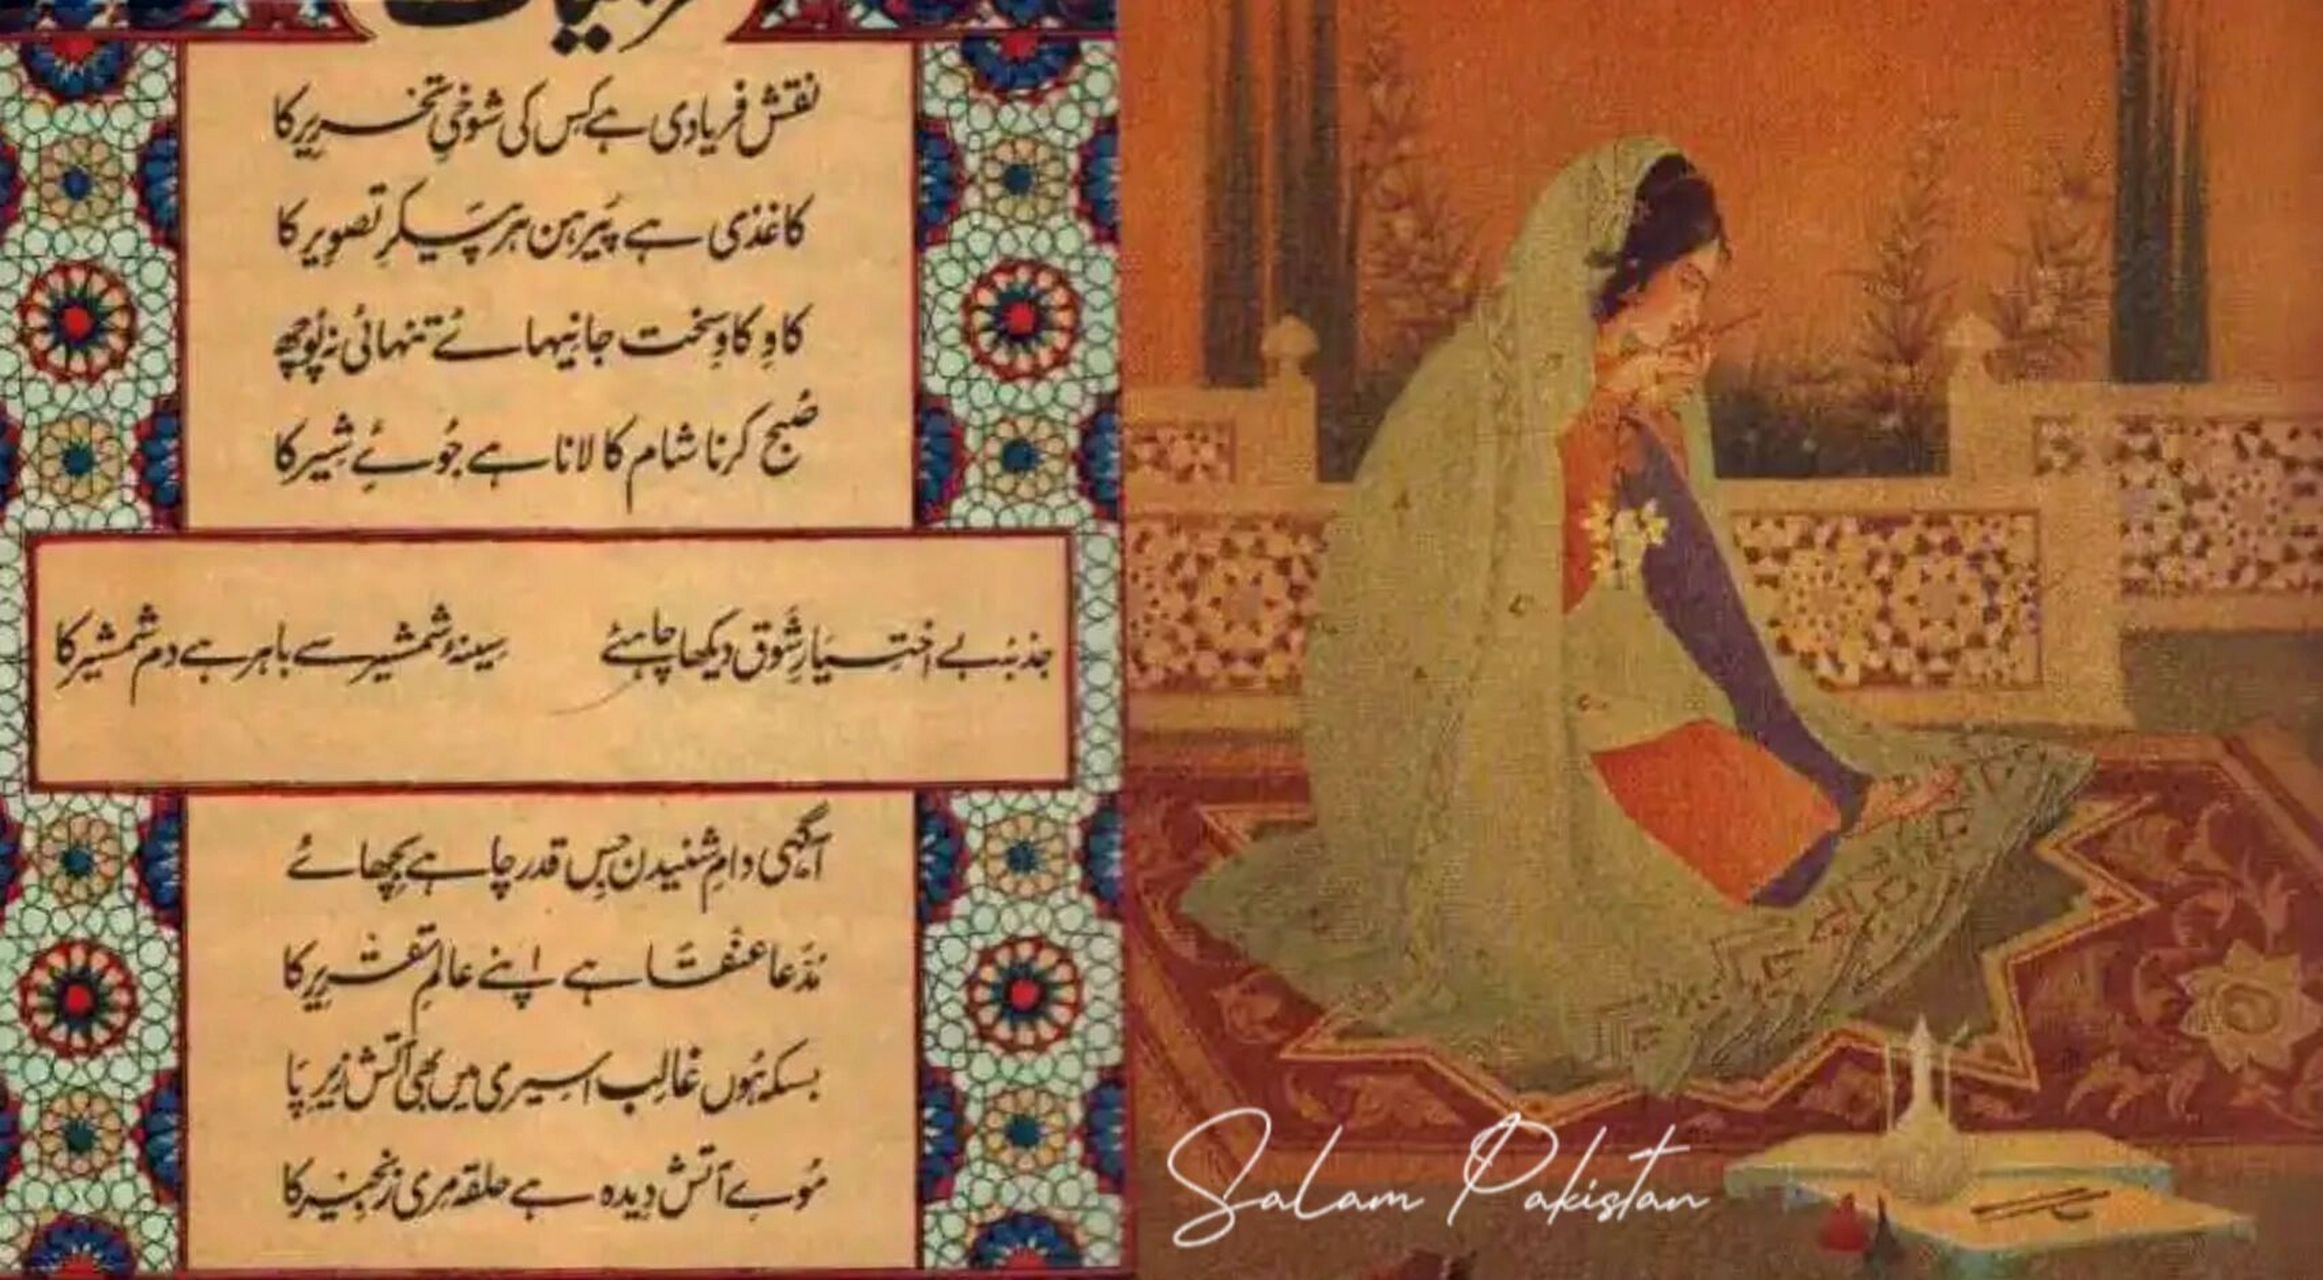 غزلیات
نقش فریادی ہے کِس کی شوخیِ تحریر کا
کاغذی ہے پَیرہن ہر پَیکرِ تصویر کا
کاوِ کاوِ سخت جانیہائے تنہائی نہ پُوچھ
صُبح کرنا شام کا لانا ہے جُوئے شِیر کا
جذبۂ بے اختیارِ شَوق دیکھا چاہئے سِینۂ شمشیر سے باہر ہے دم شمشیر کا
آگہی دامِ شنیدن جِس قدر چاہے بِچھائے
مُدّعا عنقا ہے اپنے عالمِ تقریر کا
بسکہ ہُوں غالِب اسِیری میں بھی آتش زیرِ پا
مُوئے آتش دِیدہ ہے حلقہ مِری زنجِیر کا
Salam Pakistan